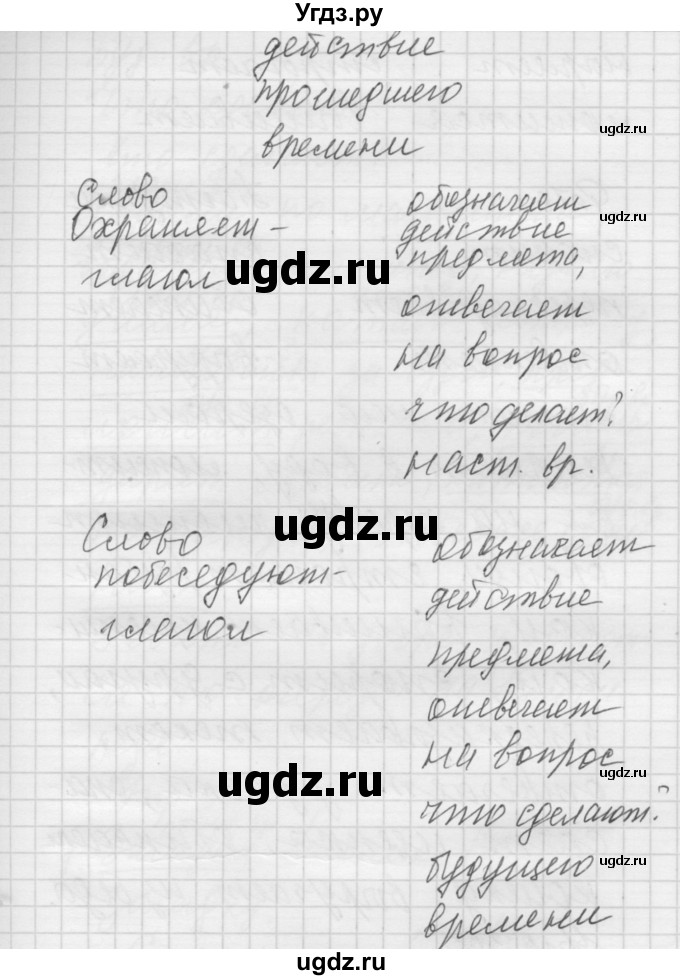 Угдз.ру
действие
прошедшего
ugdz.ru
времени
Слово
обозначает
ugdz.ru
Охраняет -
действие
предмета,
глагол
ugdz.ru
отвечает
ugdz.ru
на вопрос
что делает?
наст. вр.
ugdz.ru
Слово
обозначает
ugdz.ru
побеседуют-
действие
глагол
предмета,
отвечает
ugdz.ru
на вопрос
ugdz.ru
ugdz.ru
что сделают?
будущего
ugdz.ru
времени
ugdz.ru